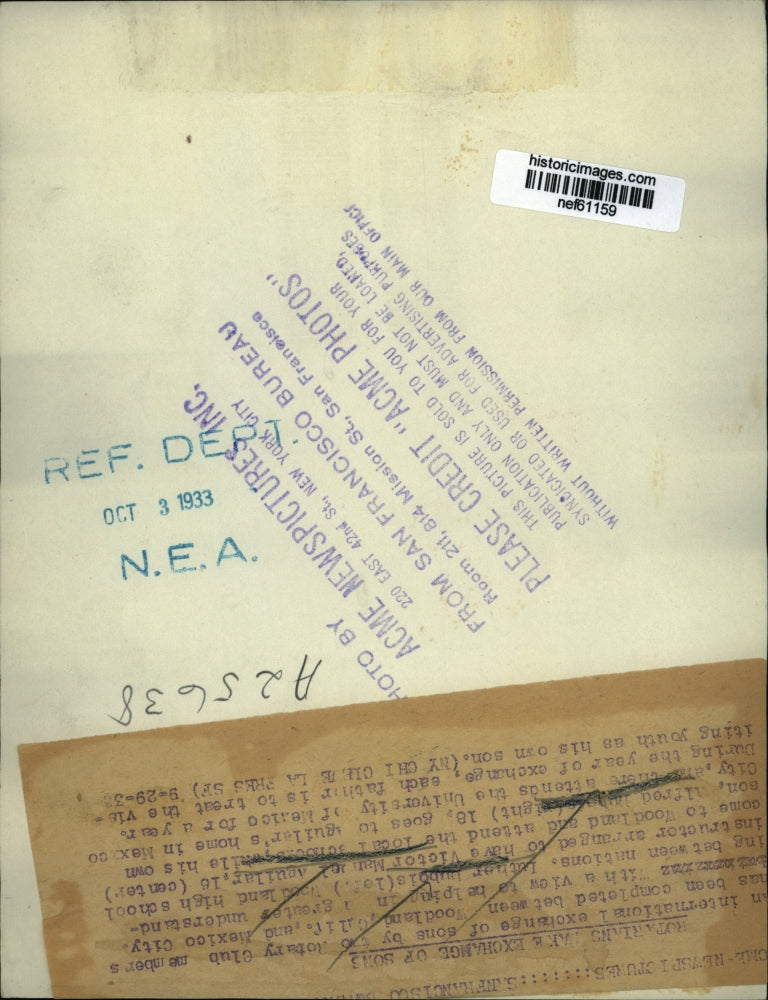 historicimages.com
nef61159
REF. DEPT.
OCT 3 1933
N.E.A.
PHOTO BY
ACME NEWSPICTURES INC.
220 EAST 42nd St., NEW YORK CITY
FROM SAN FRANCISCO BUREAU
Room 211, 814 Mission St., San Francisco
PLEASE CREDIT "ACME PHOTOS"
THIS PICTURE IS SOLD TO YOU FOR YOUR
PUBLICATION ONLY AND MUST NOT BE LOANED,
SYNDICATED OR USED FOR ADVERTISING PURPOSES
WITHOUT WRITTEN PERMISSION FROM OUR MAIN OFFICE
A25638
ACME-NEWSPICTURES::::::::SANFRANCISCO
ROTARIANS MAKE EXCHANGE OF SONS
An international exchange of sons by two Rotary Club members
has been completed between Woodland, Calif., and Mexico City.
With a view to helping in a greater understand-
ing between nations. Luther (left) Woodland high school
instructor arranged to have Victor Manuel Aguilar, 16 (center)
come to Woodland and attend the local schools, while his own
son, Alfred (right) 18, goes to Aguilar's home in Mexico
City, and there attends the University of Mexico for a year.
During the year of exchange, each father is to treat the vis-
iting youth as his own son. (NY CHI CLEVE LA PRES SF) 9-29-33